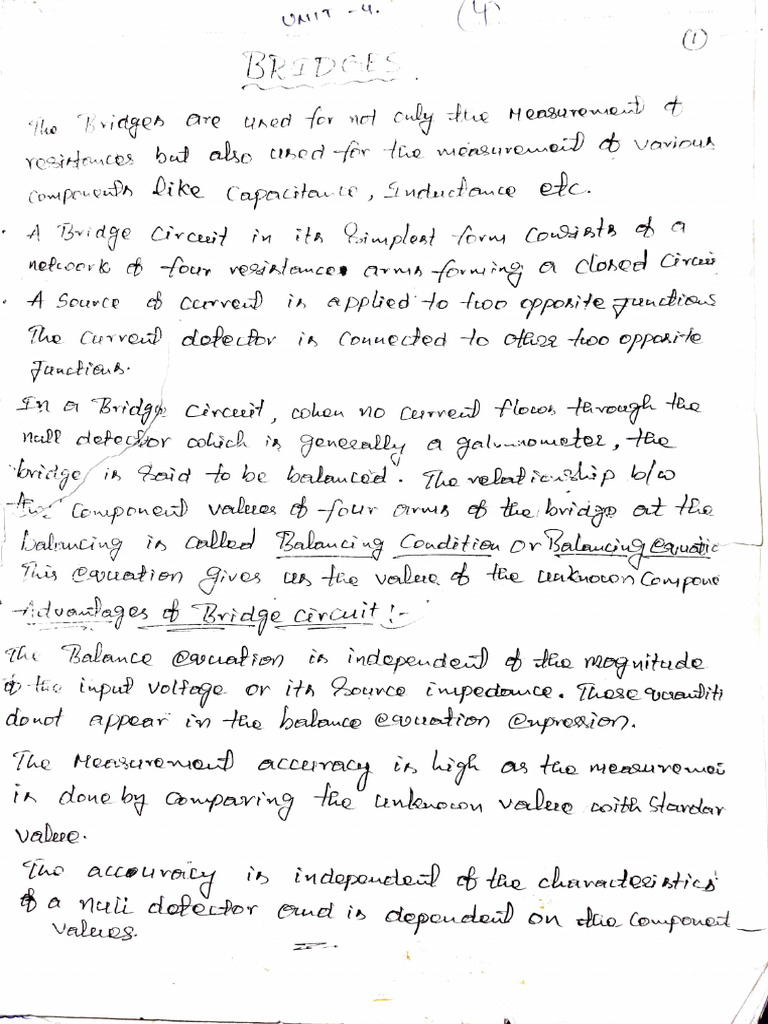 UNIT - 4.
(4)
(1)
BRIDGES.
The Bridges are used for not only the Measurement of
resistances but also used for the measurement of various
components like Capacitance, Inductance etc.
. A Bridge Circuit in its simplest form consists of a
network of four resistance arms forming a closed Circui
. A Source of current is applied to two opposite junctions
The current detector is connected to other two opposite
junctions.
In a Bridge Circuit, when no current flows through the
null detector which is generally a galvanometer, the
bridge is said to be balanced. The relationship b/w
the component values of four arms of the bridge at the
balancing is called Balancing Condition or Balancing equatio
This equation gives us the value of the unknown Compone
Advantages of Bridge circuit :-
The Balance equation is independent of the magnitude
of the input voltage or its source impedance. These quantiti
donot appear in the balance equation expression.
The Measurement accuracy is high as the measuremen
is done by comparing the unknown value with standar
value.
The accouracy is independent of the characteristics
of a null detector and is dependent on the component
values.